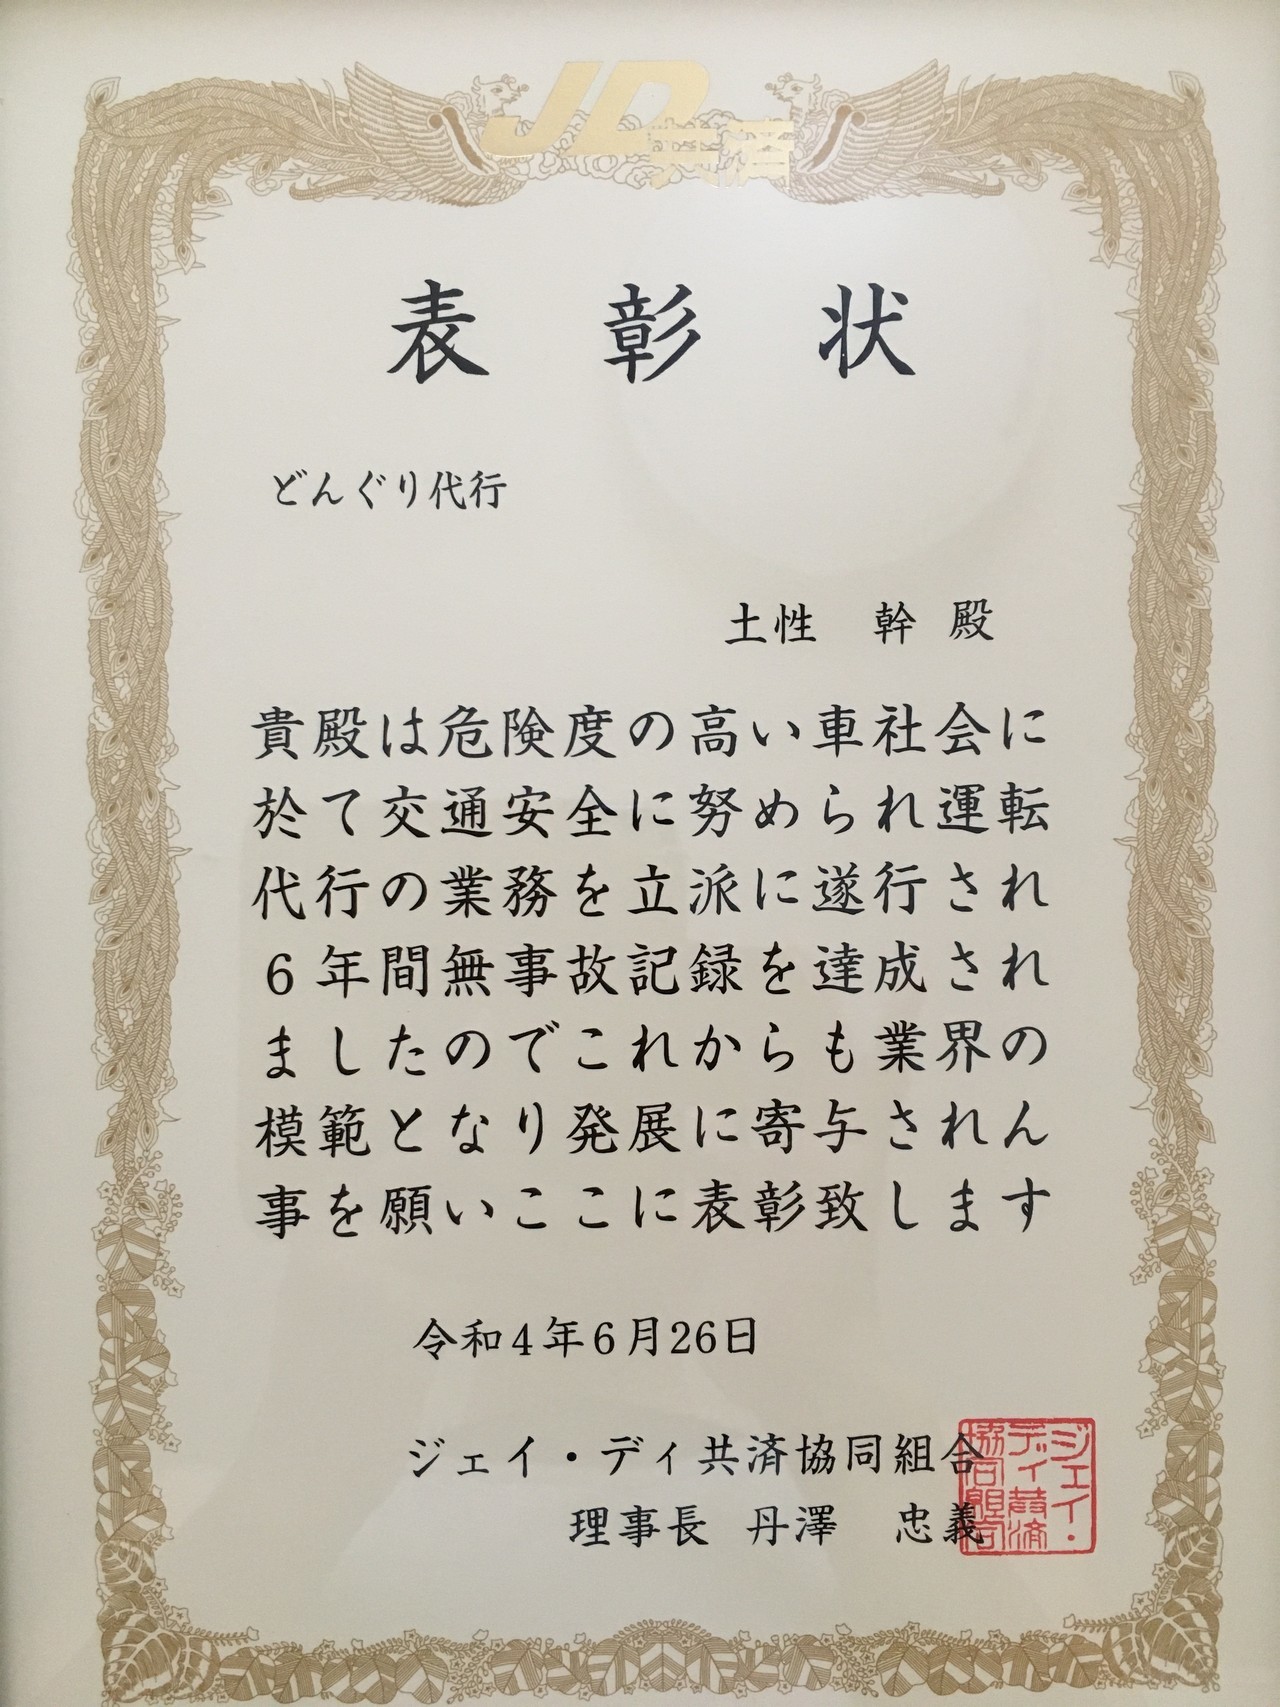 JD共済
表彰状
どんぐり代行
土性 幹 殿
貴殿は危険度の高い車社会に
於て交通安全に努められ運転
代行の業務を立派に遂行され
6年間無事故記録を達成され
ましたのでこれからも業界の
模範となり発展に寄与されん
事を願いここに表彰致します
令和4年6月26日
ジェイ・ディ共済協同組合
理事長 丹澤 忠義
ジェイ・
ディ共済
協同組合